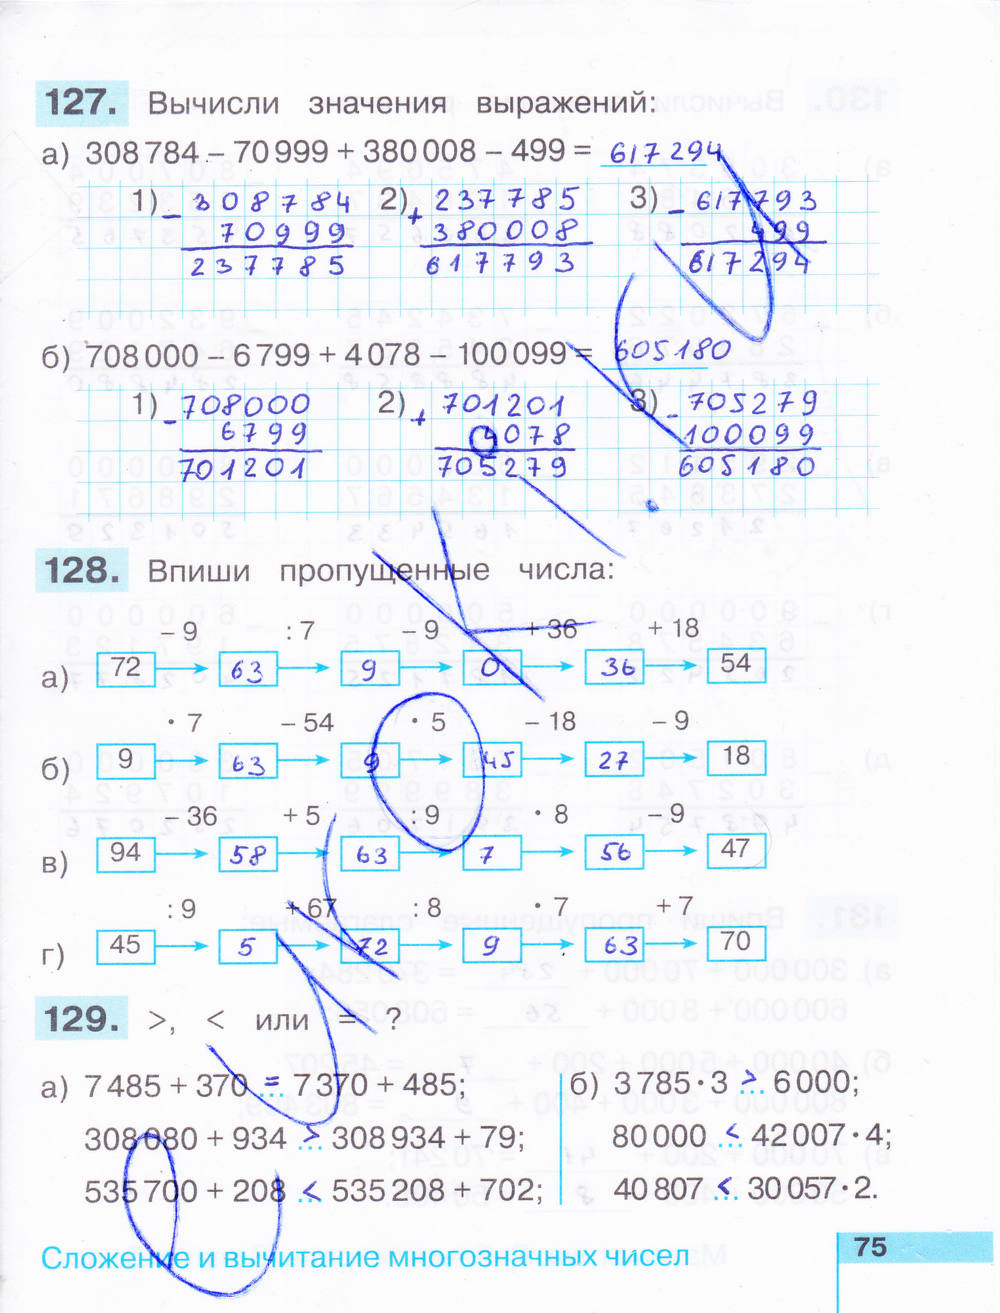 127. Вычисли значения выражений:
а) 308 784 – 70 999 + 380 008 – 499 = 617 294
1) – 308784 2) + 237785 3) – 617793
70999 380008 499
237785 617793 617294
б) 708 000 – 6 799 + 4 078 – 100 099 = 605180
1) – 708000 2) + 701201 3) – 705279
6799 4078 100099
701201 705279 605180
128. Впиши пропущенные числа:
– 9 : 7 – 9 + 36 + 18
а) 72 63 9 0 36 54
· 7 – 54 · 5 – 18 – 9
б) 9 63 9 45 27 18
– 36 + 5 : 9 · 8 – 9
в) 94 58 63 7 56 47
: 9 + 67 : 8 · 7 + 7
г) 45 5 72 9 63 70
129. >, < или = ?
а) 7 485 + 370 = 7 370 + 485; б) 3 785 · 3 > 6 000;
308 080 + 934 > 308 934 + 79; 80 000 < 42 007 · 4;
535 700 + 208 < 535 208 + 702; 40 807 < 30 057 · 2.
Сложение и вычитание многозначных чисел 75